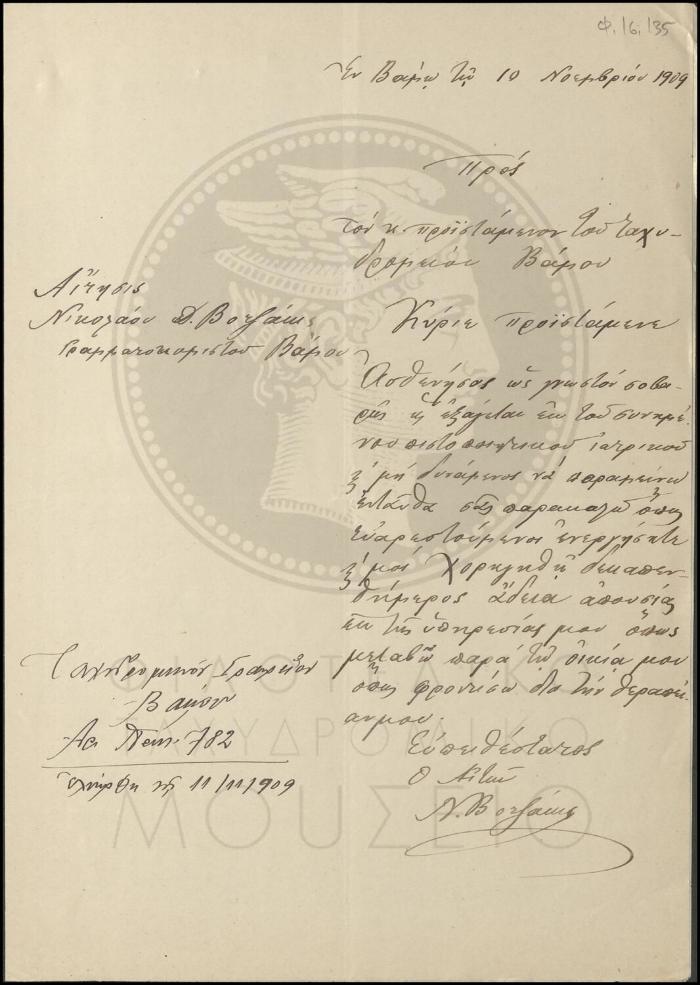 Φ. 16. 135
Ἐν Βάμῳ τῇ 10 Νοεμβρίου 1909
Πρός
τὸν κ. προϊστάμενον τοῦ ταχυ-
δρομείου Βάμου
Αἴτησις
Νικολάου Δ. Βοτζάκη
Γραμματοκομιστοῦ Βάμου
Κύριε προϊστάμενε
Ἀσθενήσας ὡς γνωστόν σοβα-
ρῶς ὡς ἐξάγεται ἐκ τοῦ συνημμέ-
νου πιστοποιητικοῦ ἰατρικοῦ
μή δυνάμενος νά παραμείνω
ἐνταῦθα σᾶς παρακαλῶ ὅπως
εὐαρεστούμενος ἐνεργήσητε
μοί χορηγηθῇ δεκαπεν-
θήμερος ἄδεια ἀπουσίας
ἐκ τῆς ὑπηρεσίας μου ὅπως
μεταβῶ παρά τῇ οἰκίᾳ μου
ὅπως φροντίσω διά τήν θεραπεί-
αν μου.
Εὐπειθέστατος
Ὁ Αἰτῶν
Ν. Βοτζάκης
Ταχυδρομικόν Γραφεῖον
Βάμου
Αρ. Πρωτ. 782
Ἐλήφθη τῇ 11/11/909
ΦΙΛΟΤΕΛΙΚΟ
ΤΑΧΥΔΡΟΜΙΚΟ
ΜΟΥΣΕΙΟ